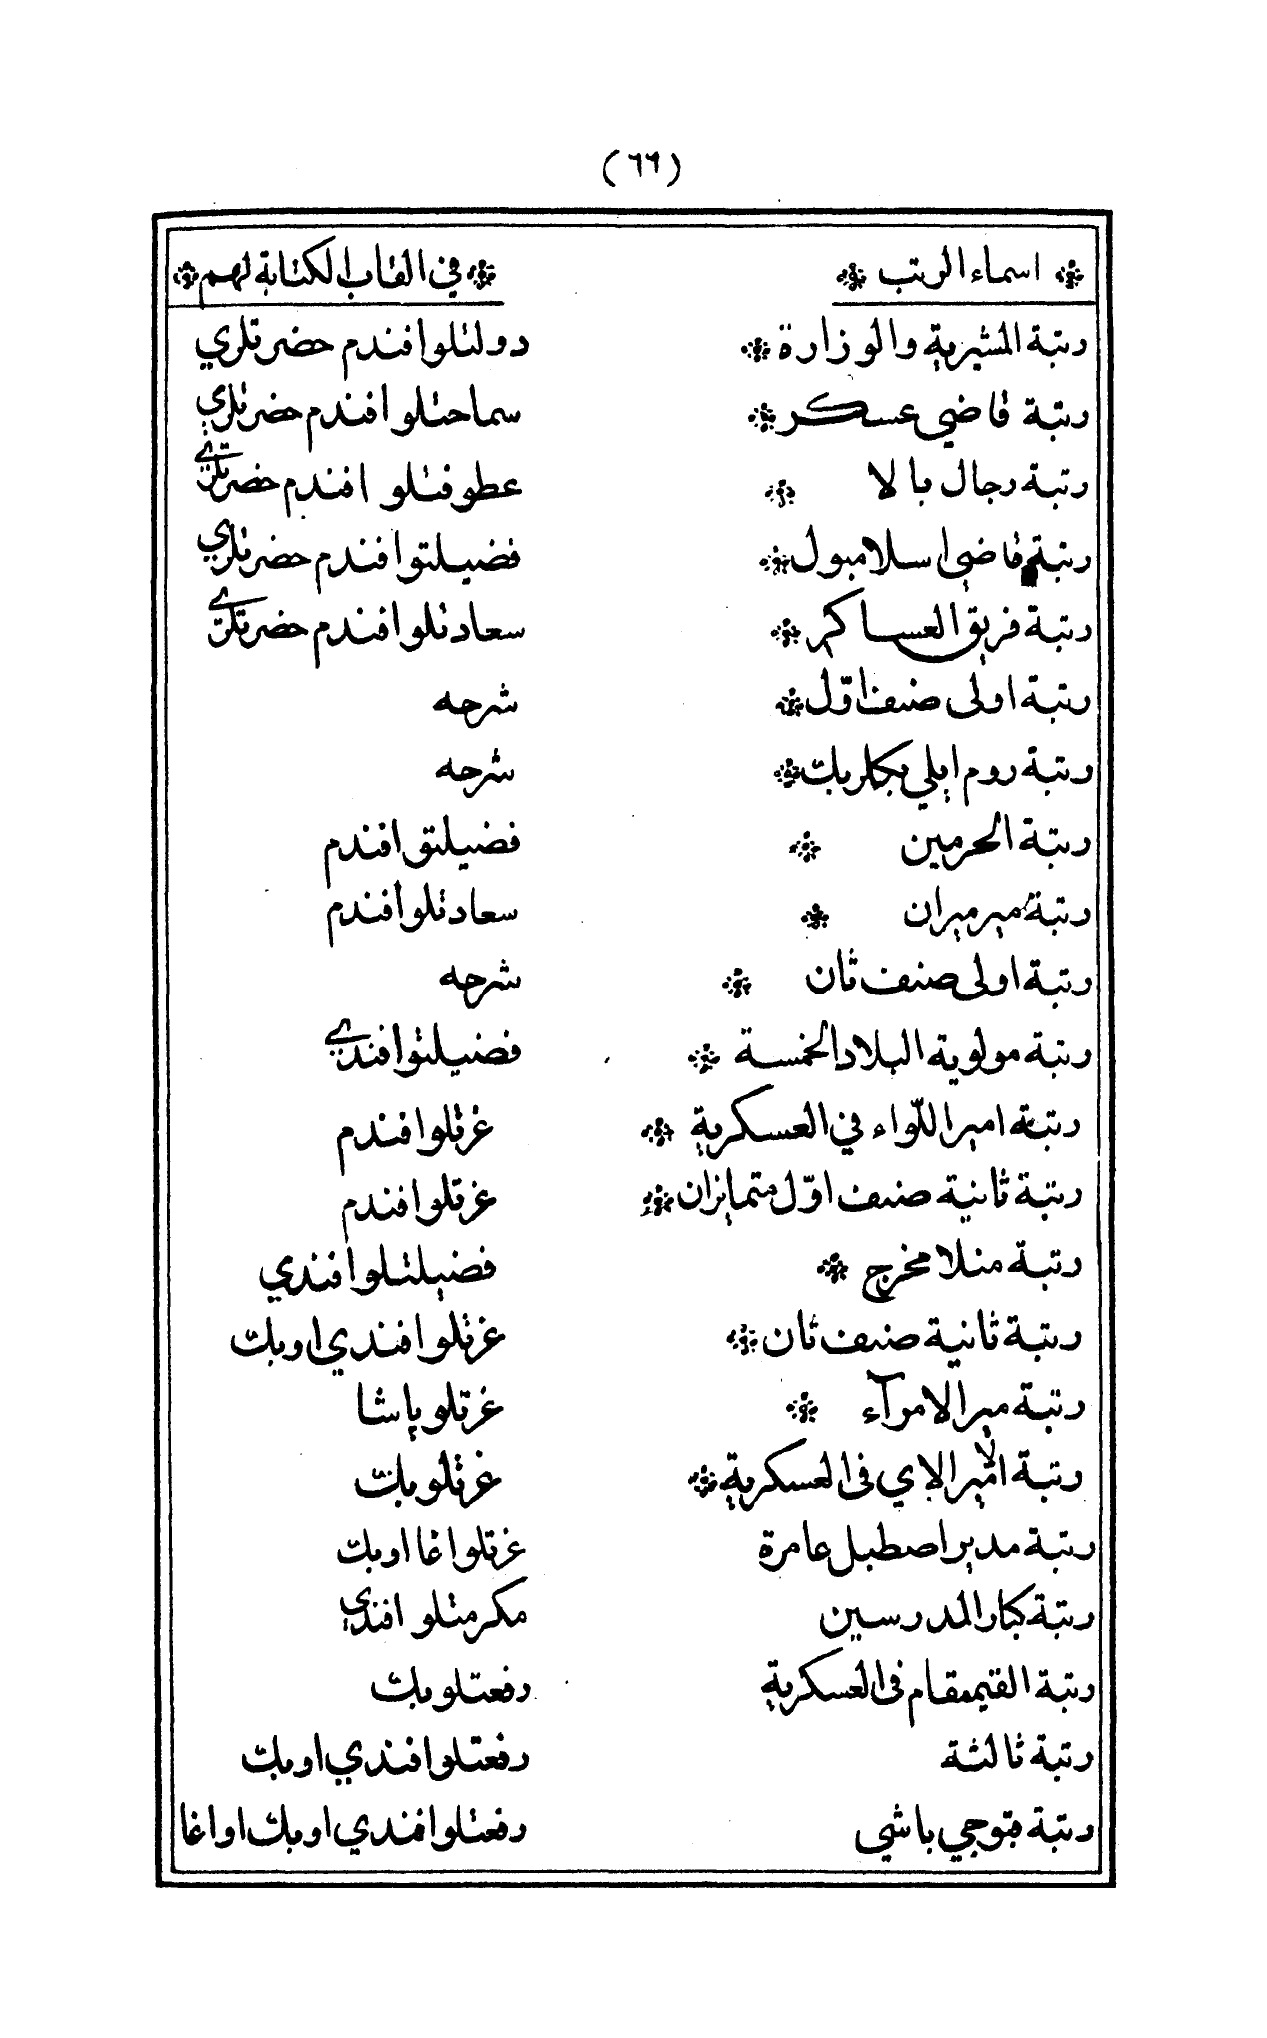 (٦٦)
اسماء الرتب في القاب الكتابة لهم
رتبة المشيرية والوزارة دولتلو افندم حضرتلري
رتبة قاضي عسكر سماحتلو افندم حضرتلري
رتبة رجال بالا عطوفتلو افندم حضرتلري
رتبة قاضي اسلامبول فضيلتو افندم حضرتلري
رتبة فريق العساكر سعادتلو افندم حضرتلري
رتبة اولى صنف اوّل شرحه
رتبة روم ايلي بكلربك شرحه
رتبة الحرمين فضيلتو افندم
رتبة ميرميران سعادتلو افندم
رتبة اولى صنف ثان شرحه
رتبة مولوية البلاد الخمسة فضيلتو افندي
رتبة امير اللّواء في العسكرية غزتلو افندم
رتبة ثانية صنف اوّل متمايزان غزتلو افندم
رتبة منلا مخرج فضيلتلو افندي
رتبة ثانية صنف ثان غزتلو افندي او بك
رتبة مير الامرآء غزتلو باشا
رتبة امير الاي في العسكرية غزتلو بك
رتبة مدير اصطبل عامرة غزتلو اغا او بك
رتبة كبار المدرسين مكرمتلو افندي
رتبة القيممقام في العسكرية رفعتلو بك
رتبة ثالثة رفعتلو افندي او بك
رتبة قبوجي باشي رفعتلو افندي او بك او اغا